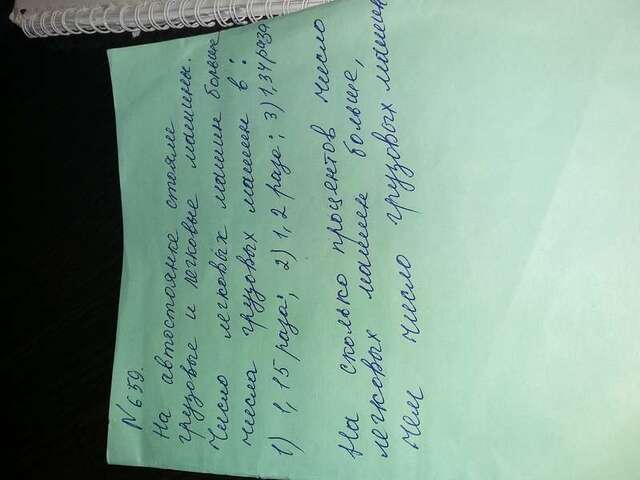 N 659.
На автостоянке стояли
грузовые и легковые машины.
Число легковых машин больше
числа грузовых машин в:
1) 1,15 раза; 2) 1,2 раза; 3) 1,34 раза
На сколько процентов число
легковых машин больше,
чем число грузовых машин